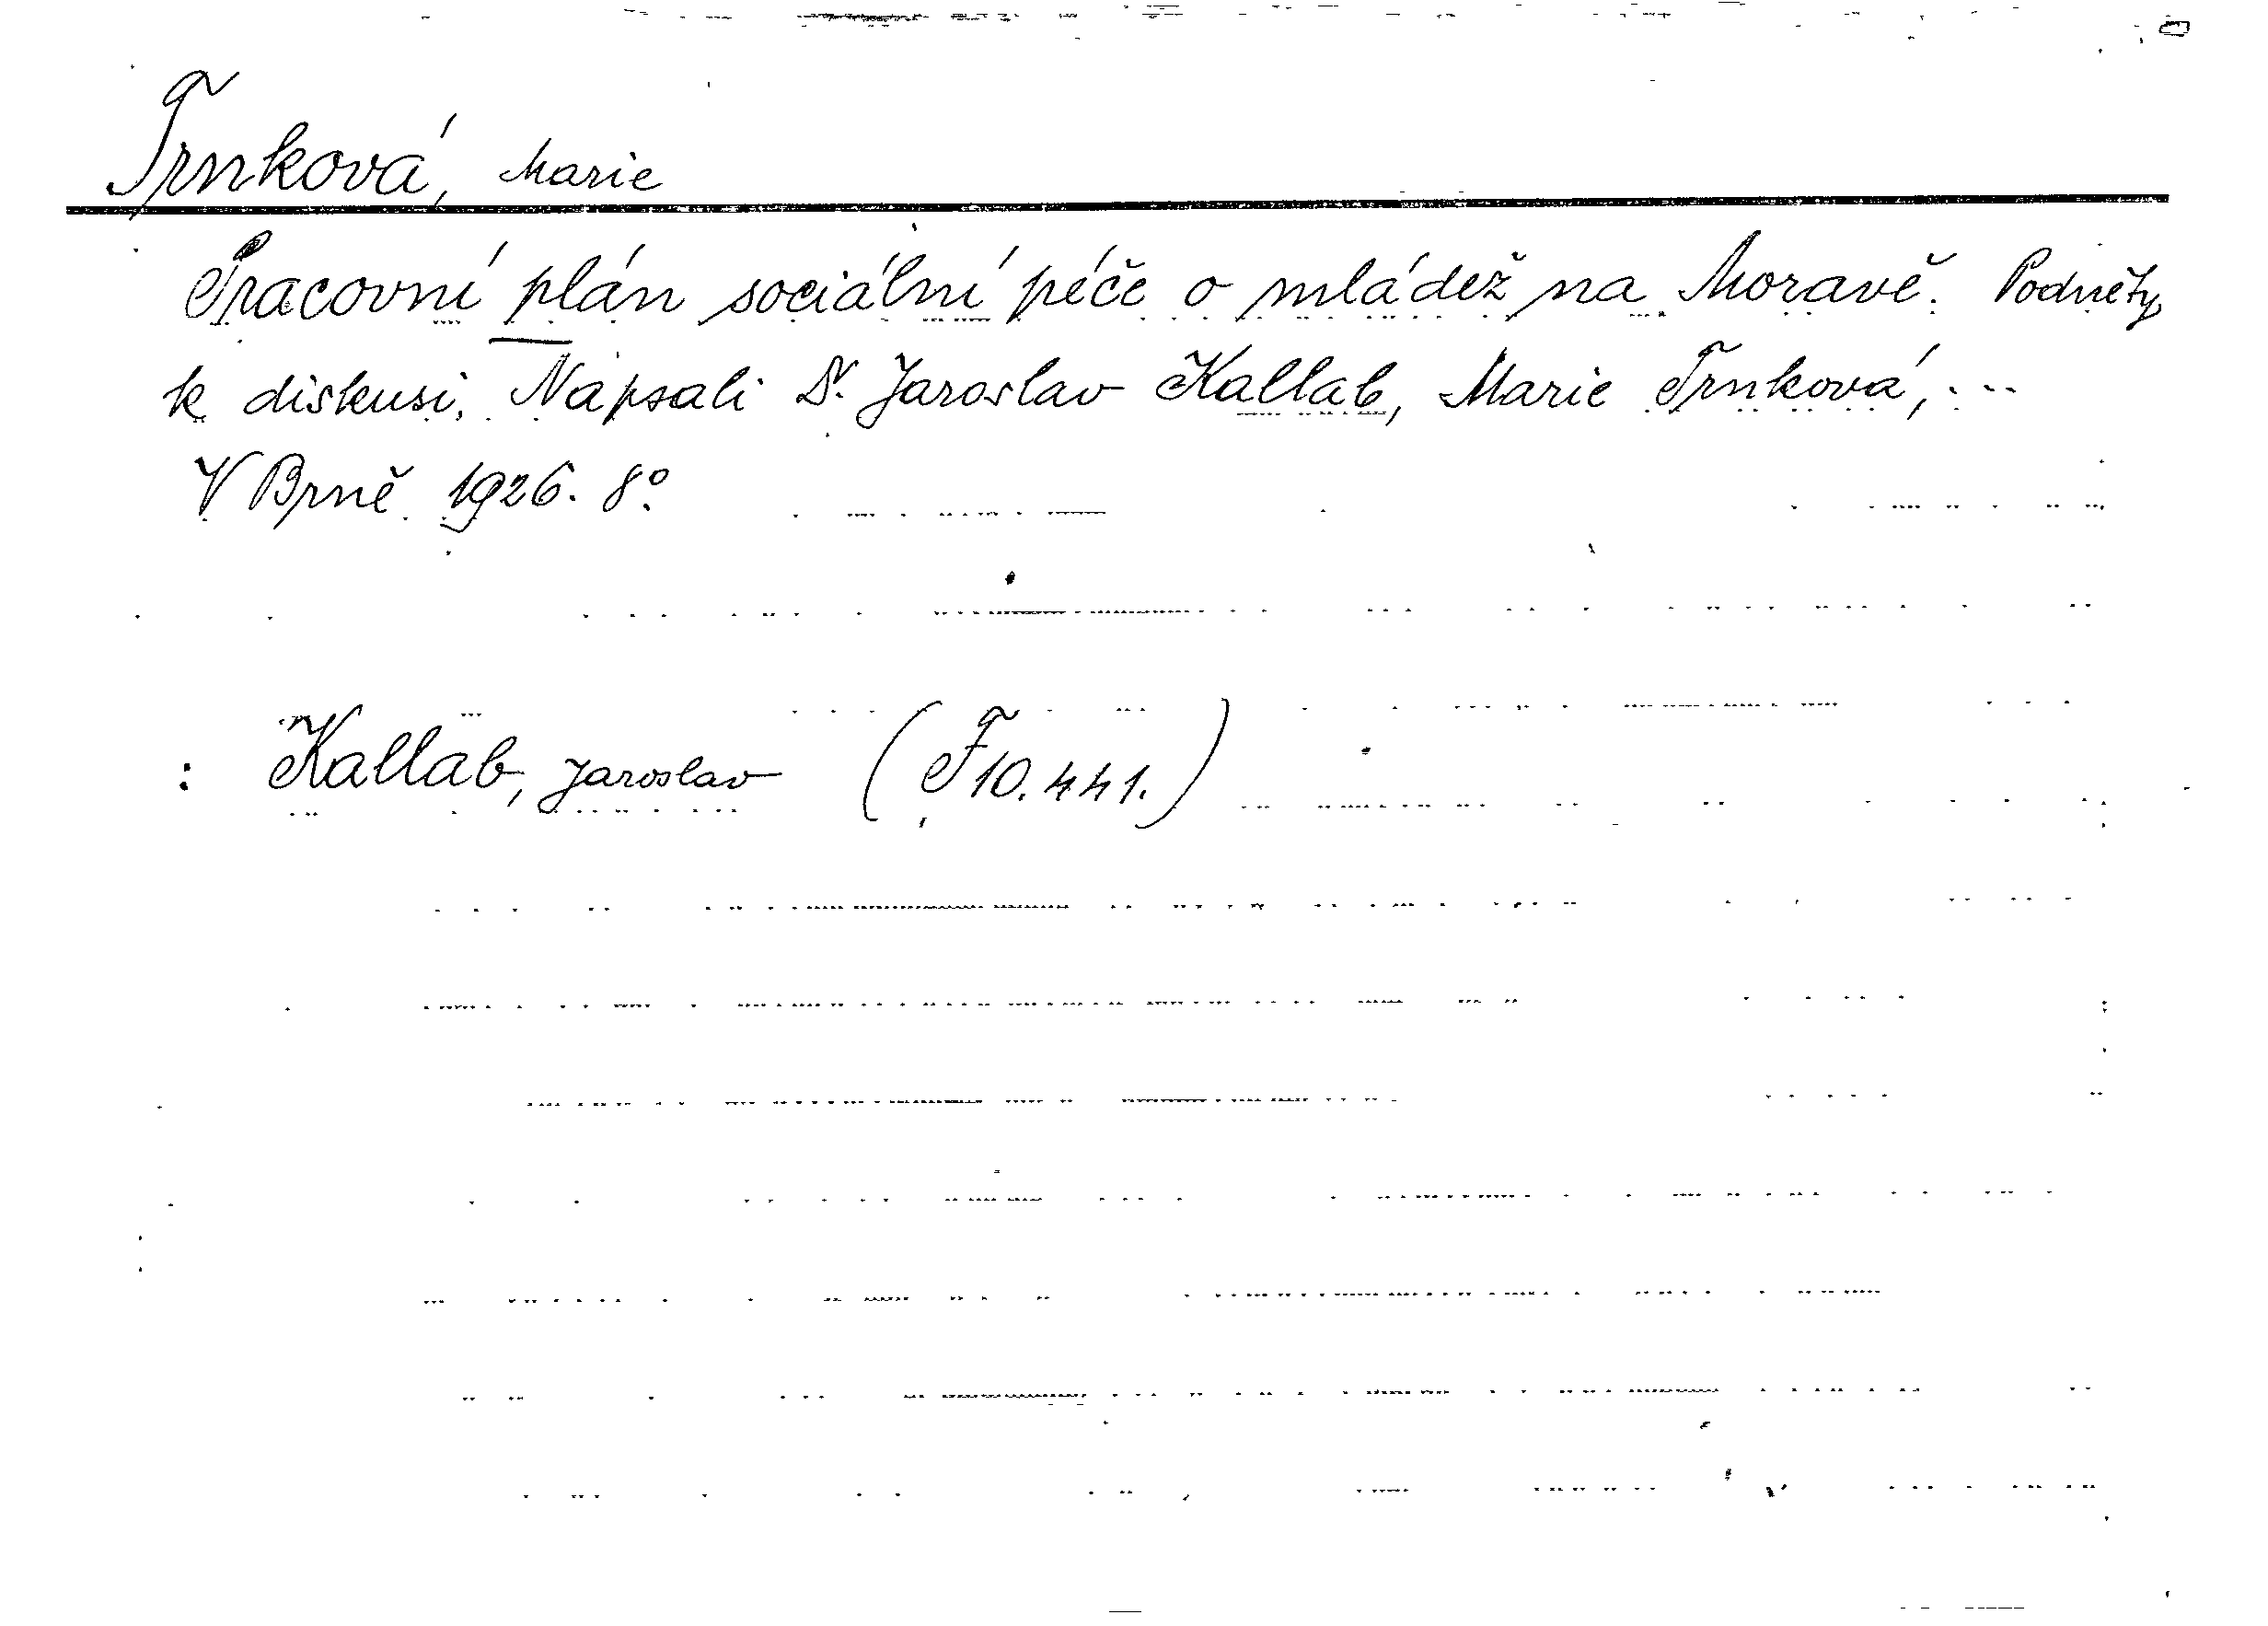 Trnková, Marie
Pracovní plán sociální péče o mládež na Moravě. Podněty
k diskusi. Napsali Dr. Jaroslav Kallab, Marie Trnková, ...
V Brně 1926. 8°.
: Kallab, Jaroslav (F 10.441.)